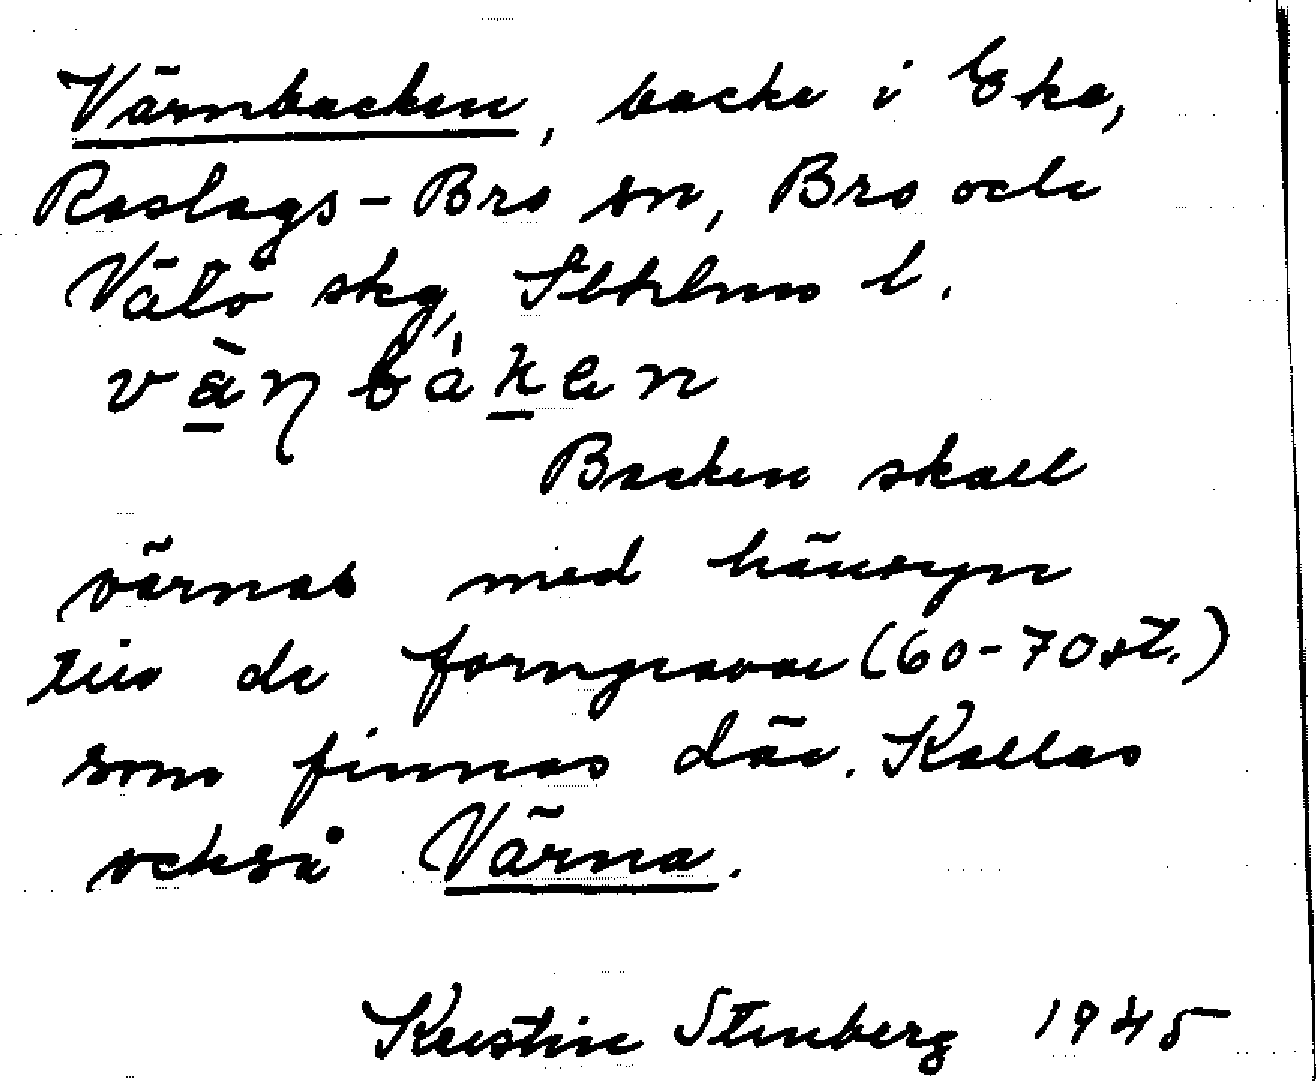 Värnbacken, backe i Eka,
Roslags-Bro sn, Bro och
Vätö skg, Stockholms l.
vä̀ɳbàken
Backen skall
värnas med hänsyn
till de forngravar (60-70 st.)
som finnas där. Kallas
också Värna.
Kerstin Stenberg 1945